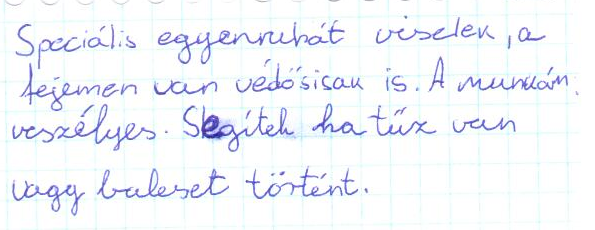 Speciális egyenruhát viselek, a
fejemen van védősisak is. A munkám
veszélyes. Segítek ha tűz van
vagy baleset történt.